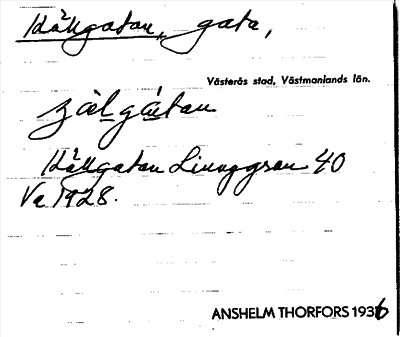 Källgatan, gata,
Västerås stad, Västmanlands län.
Källgatan Ljunggren 40
Va 1928.
ANSHELM THORFORS 1936